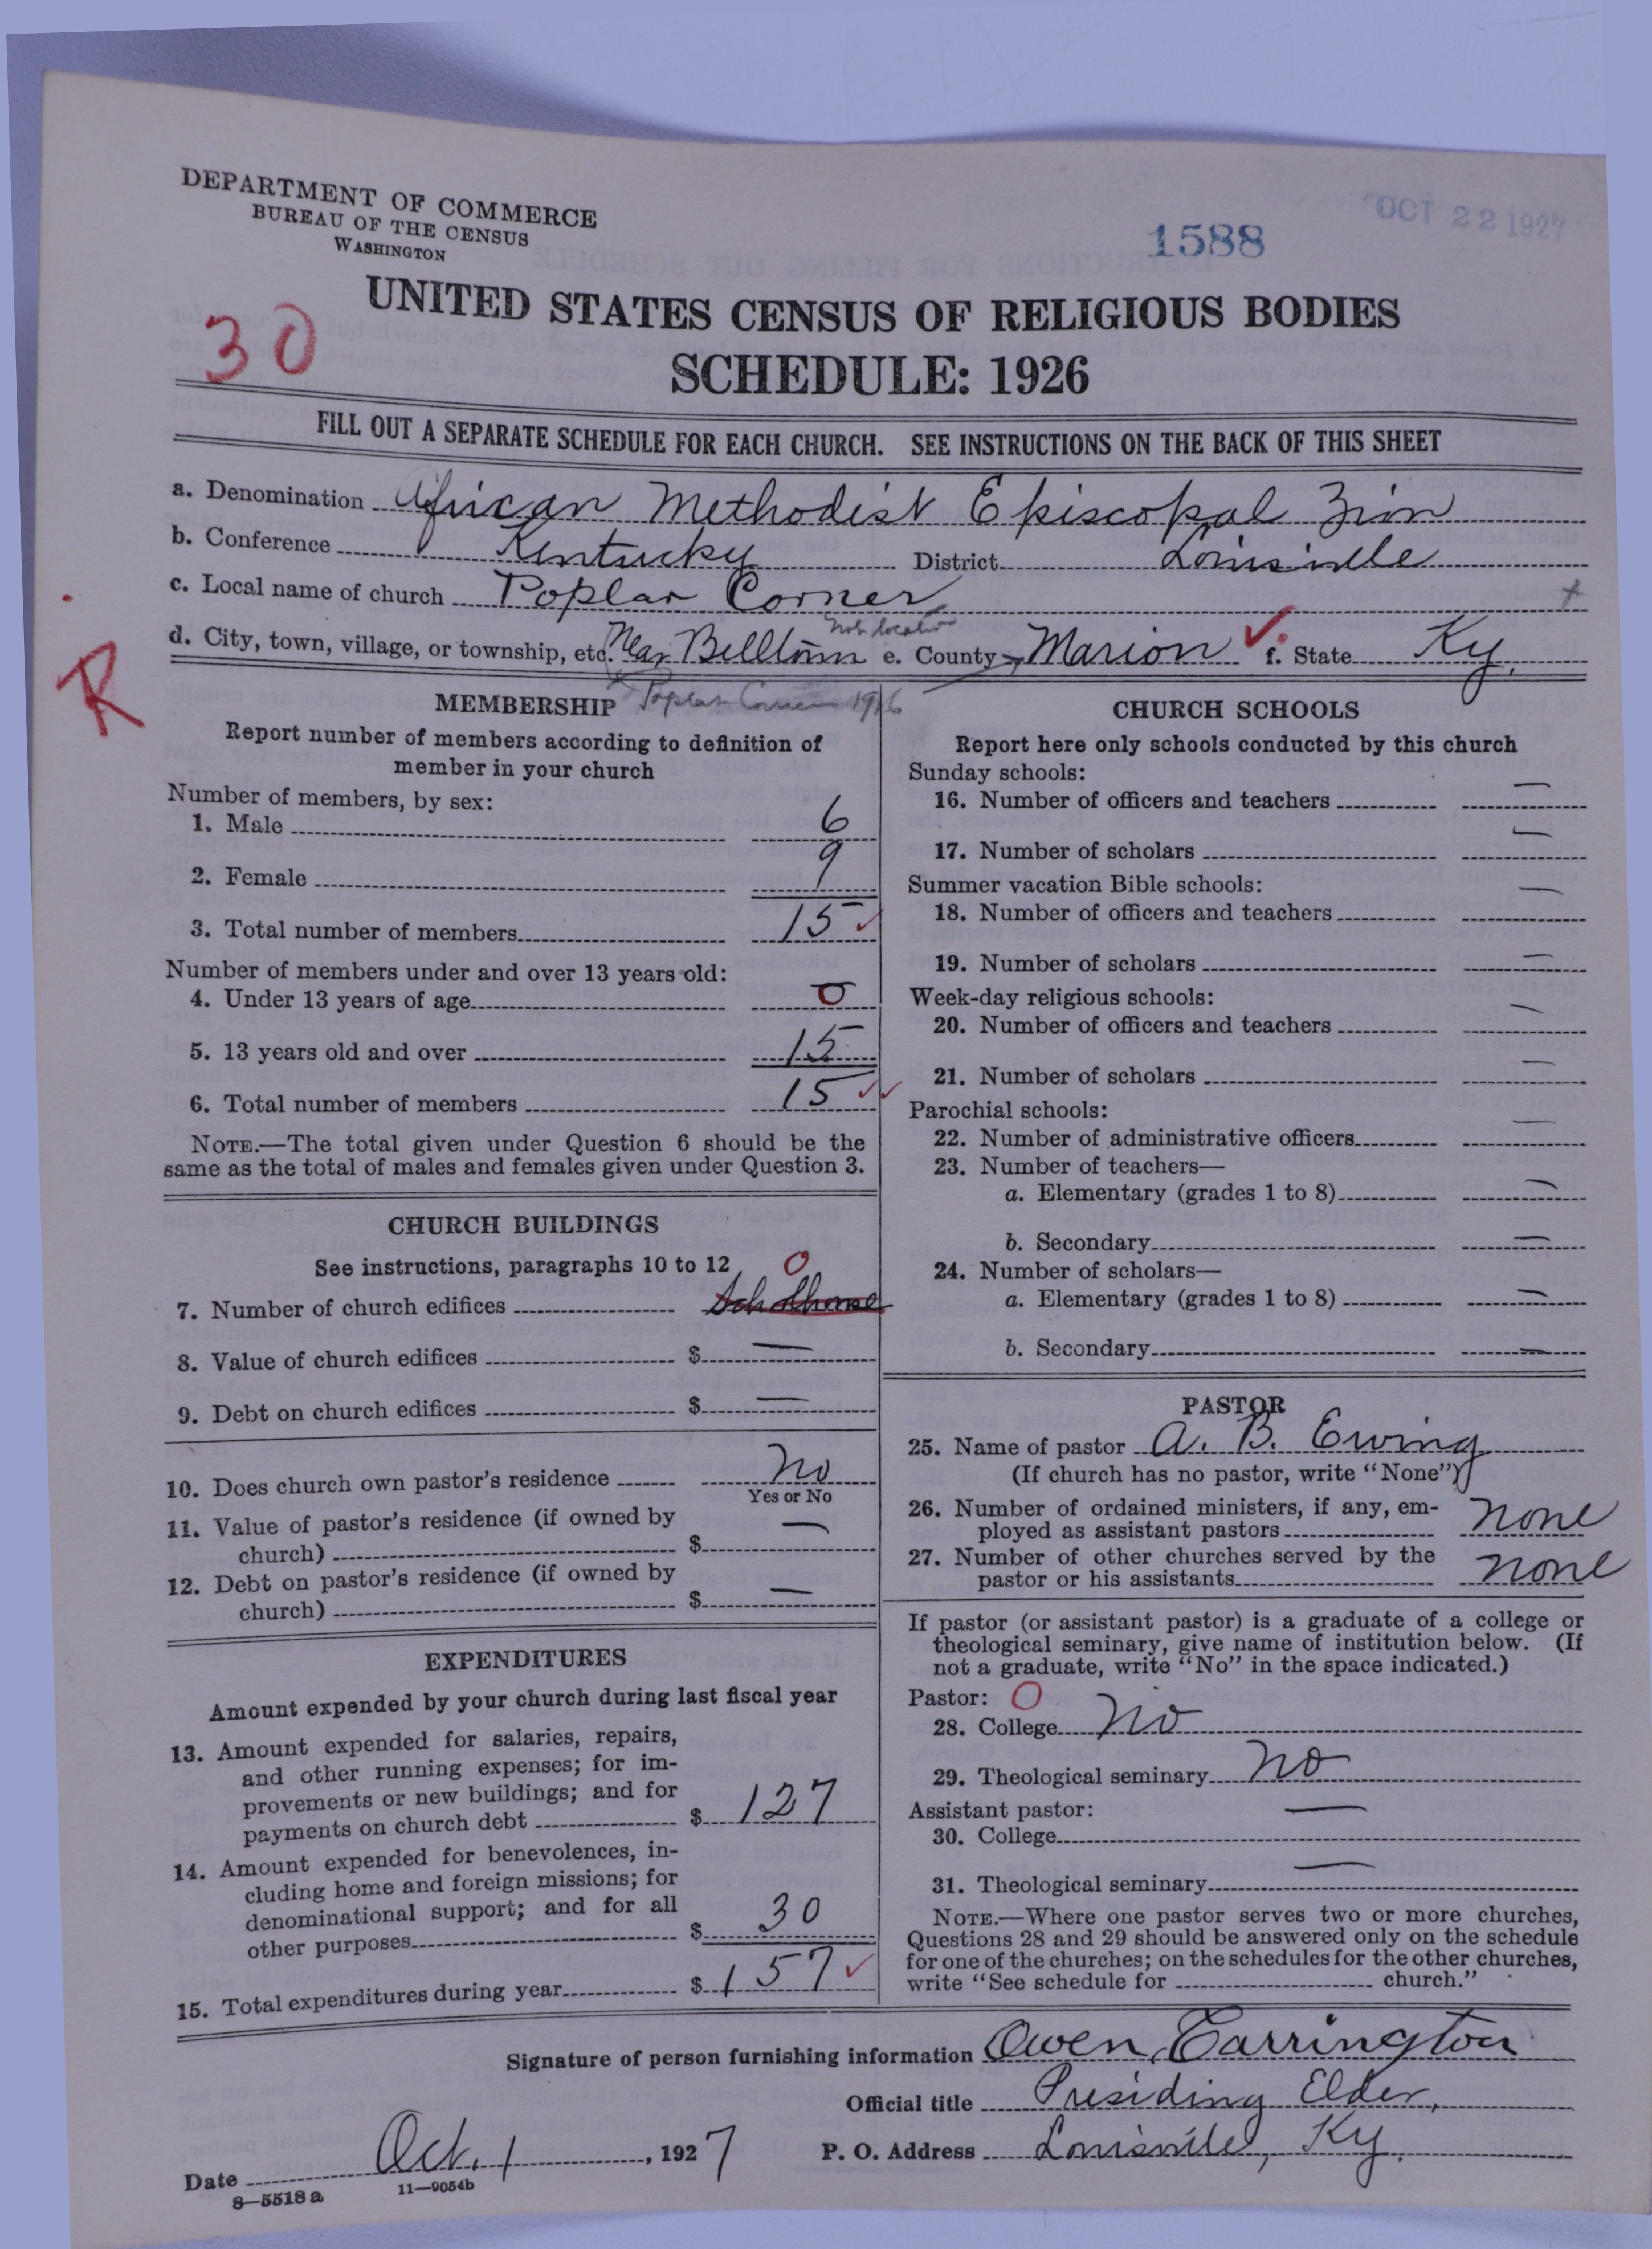 DEPARTMENT OF COMMERCE
BUREAU OF THE CENSUS
WASHINGTON
1588
OCT 22 1927
UNITED STATES CENSUS OF RELIGIOUS BODIES
30
SCHEDULE: 1926
FILL OUT A SEPARATE SCHEDULE FOR EACH CHURCH. SEE INSTRUCTIONS ON THE BACK OF THIS SHEET
a. Denomination African Methodist Episcopal Zion
b. Conference Kentucky District Louisville
c. Local name of church Poplar Corner
not location
d. City, town, village, or township, etc. Near Belltown e. County Marion f. State Ky.
R
MEMBERSHIP Poplar Corner 1916
Report number of members according to definition of
member in your church
Number of members, by sex:
1. Male 6
2. Female 9
3. Total number of members 15
Number of members under and over 13 years old:
4. Under 13 years of age 0
5. 13 years old and over 15
6. Total number of members 15
NOTE.—The total given under Question 6 should be the
same as the total of males and females given under Question 3.
CHURCH BUILDINGS
See instructions, paragraphs 10 to 12 0
7. Number of church edifices Scholhouse
8. Value of church edifices $ —
9. Debt on church edifices $ —
10. Does church own pastor's residence No
Yes or No
11. Value of pastor's residence (if owned by
church) $ —
12. Debt on pastor's residence (if owned by
church) $ —
EXPENDITURES
Amount expended by your church during last fiscal year
13. Amount expended for salaries, repairs,
and other running expenses; for im-
provements or new buildings; and for
payments on church debt $ 127
14. Amount expended for benevolences, in-
cluding home and foreign missions; for
denominational support; and for all
other purposes $ 30
15. Total expenditures during year $ 157
CHURCH SCHOOLS
Report here only schools conducted by this church
Sunday schools:
16. Number of officers and teachers —
17. Number of scholars —
Summer vacation Bible schools:
18. Number of officers and teachers —
19. Number of scholars —
Week-day religious schools:
20. Number of officers and teachers —
21. Number of scholars —
Parochial schools:
22. Number of administrative officers —
23. Number of teachers—
a. Elementary (grades 1 to 8) —
b. Secondary —
24. Number of scholars—
a. Elementary (grades 1 to 8) —
b. Secondary —
PASTOR
25. Name of pastor A. B. Ewing
(If church has no pastor, write "None")
26. Number of ordained ministers, if any, em-
ployed as assistant pastors none
27. Number of other churches served by the
pastor or his assistants none
If pastor (or assistant pastor) is a graduate of a college or
theological seminary, give name of institution below. (If
not a graduate, write "No" in the space indicated.)
Pastor: 0
28. College No
29. Theological seminary No
Assistant pastor: —
30. College
31. Theological seminary —
NOTE.—Where one pastor serves two or more churches,
Questions 28 and 29 should be answered only on the schedule
for one of the churches; on the schedules for the other churches,
write "See schedule for church."
Signature of person furnishing information Owen Carrington
Official title Presiding Elder,
Date Oct. 1, 1927 P. O. Address Louisville, Ky.
8—5518 a 11—9054b